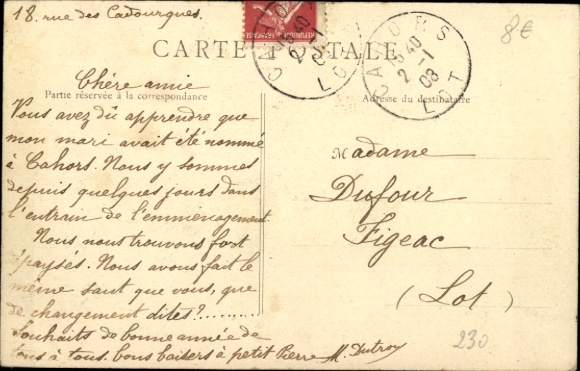 18, rue des Cadourques.
8€
CARTE POSTALE
CAHORS
40
2 -1
08
LOT
Chère amie
Partie réservée à la correspondance
Adresse du destinataire
Vous avez dû apprendre que
mon mari avait été nommé
à Cahors. Nous y sommes
depuis quelques jours dans
l'entrain de l'emménagement.
Nous nous trouvons fort
épaysés. Nous avons fait le
même saut que vous, que
de changement dites?.........
Souhaits de bonne année de
tous à tous. bons baisers à petit Pierre M. Dutroy
Madame
Dufour
Figeac
(Lot)
230